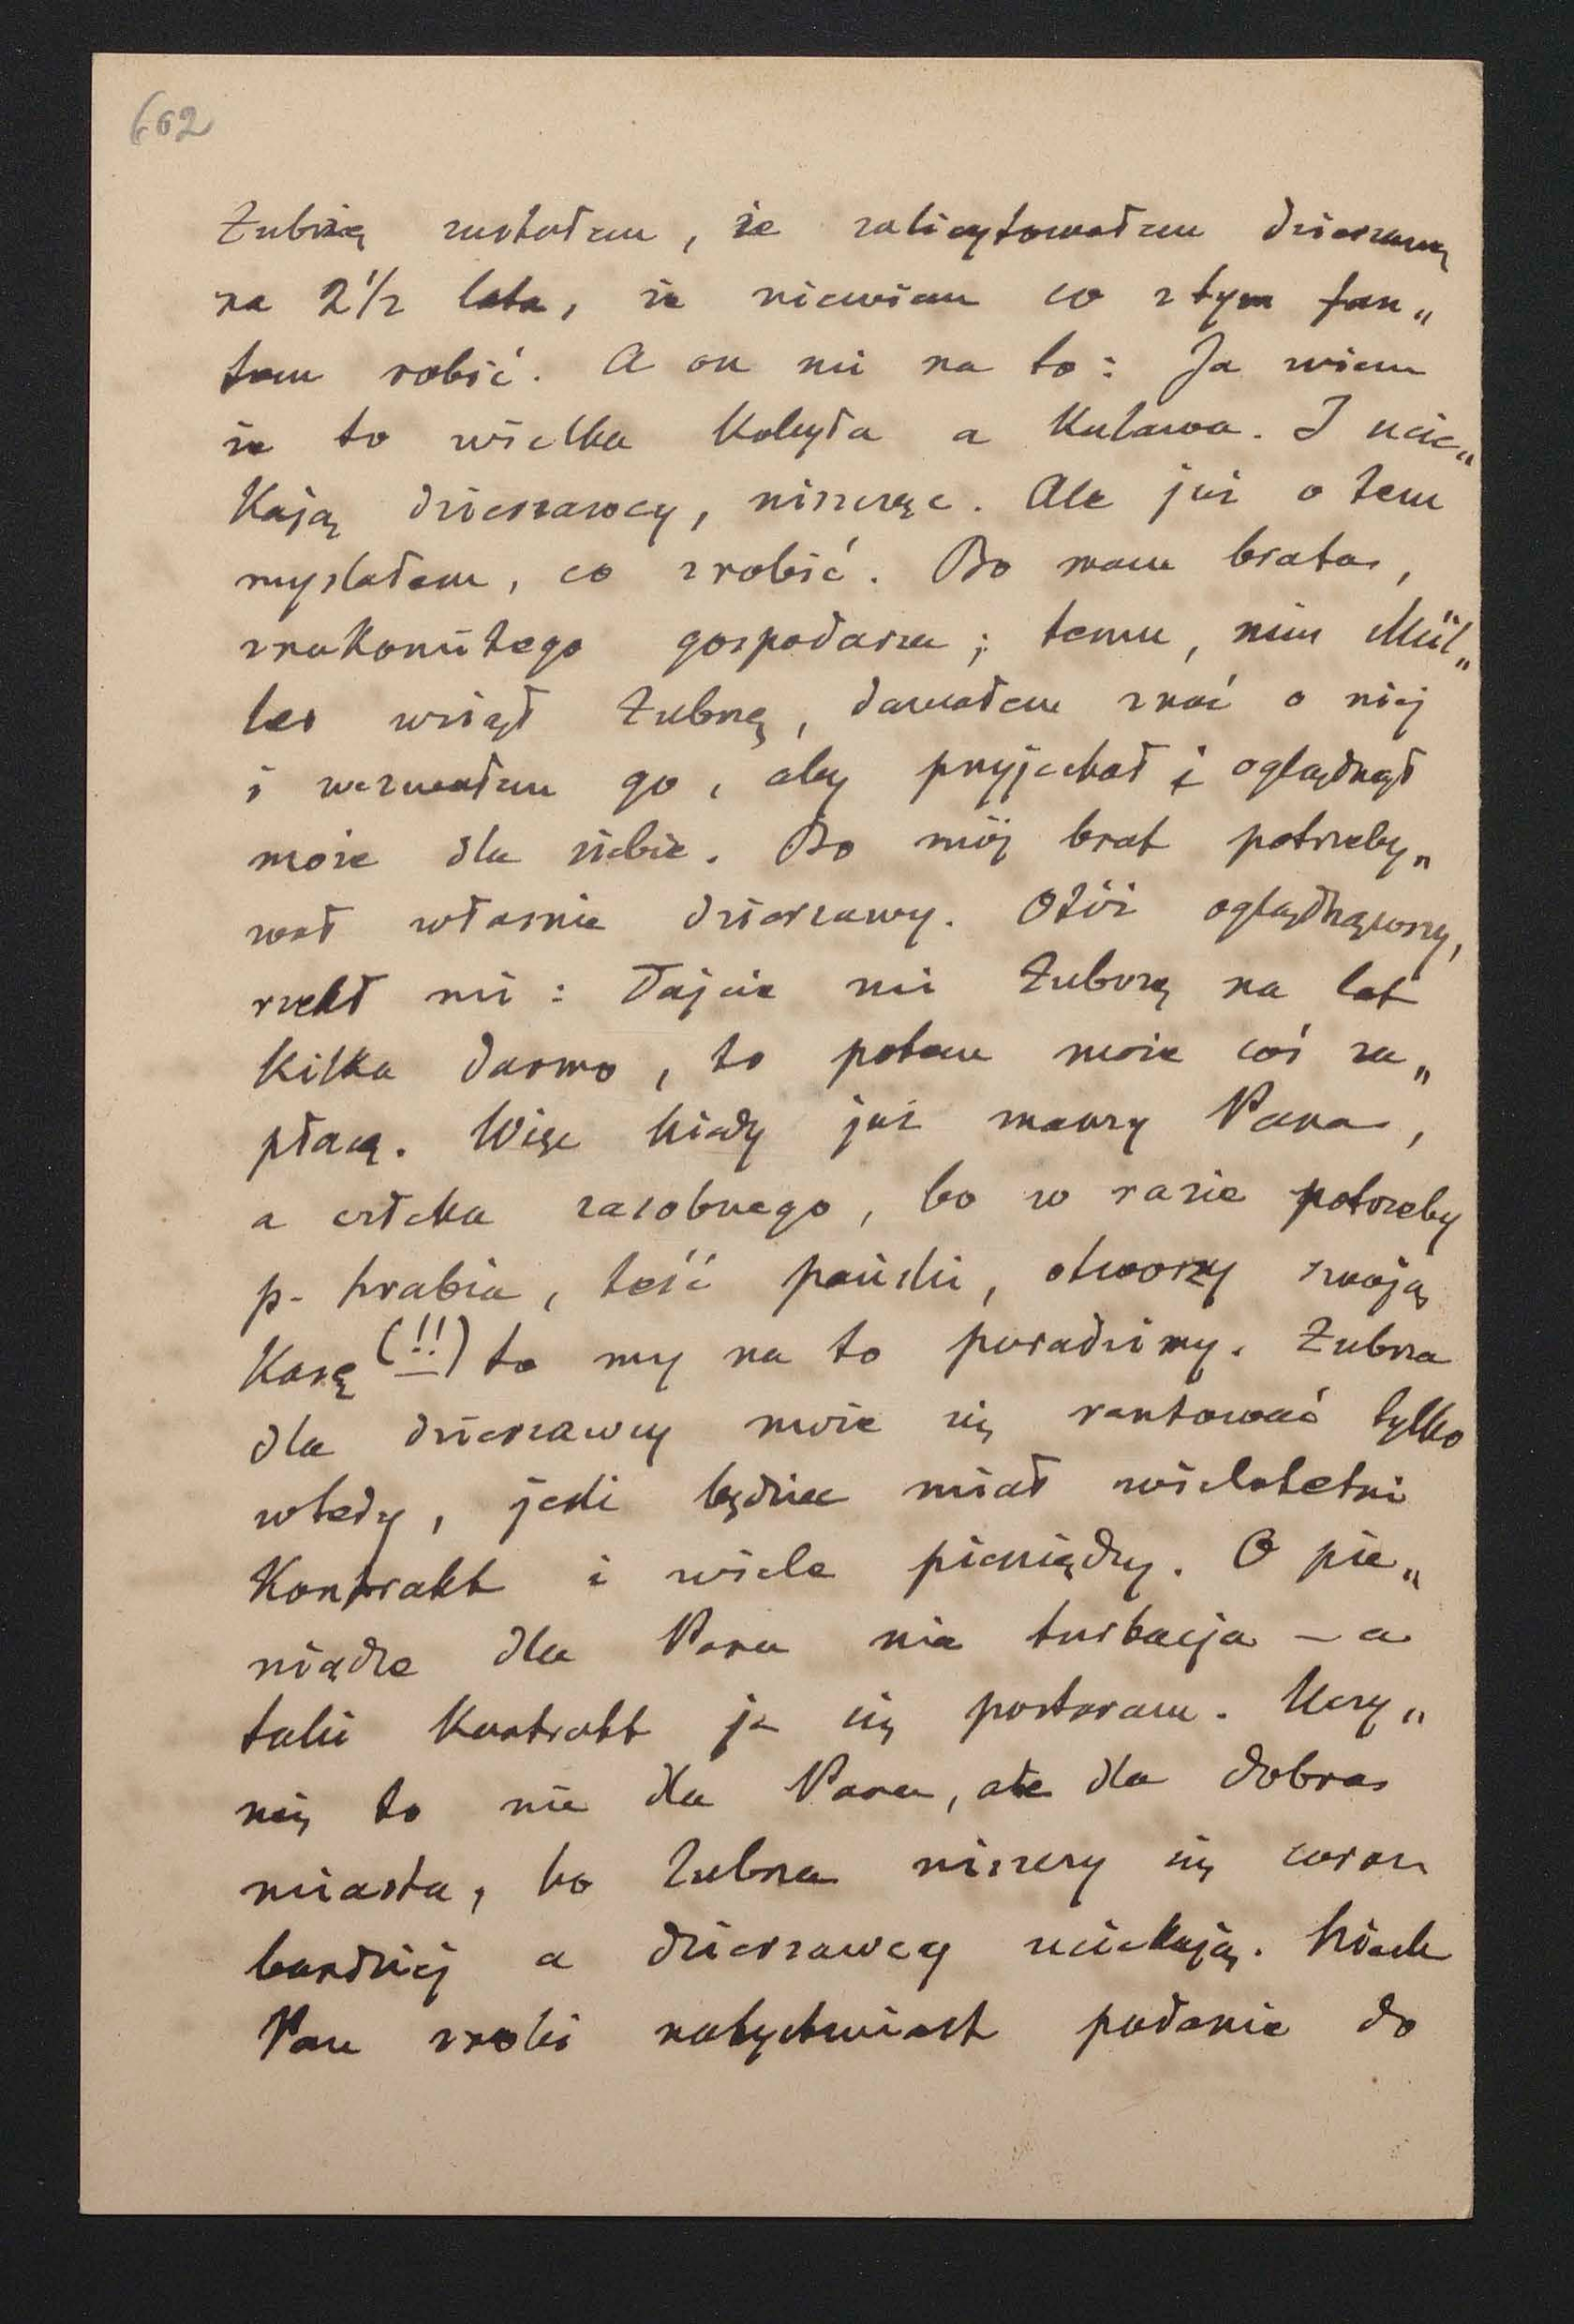 602
Zubrzę zastałem, że zalicytowałem dzierżawę
na 2 1/2 lata, że niewiem co z tym fan„
tem robić. A on mi na to: Ja wiem
że to wielka kobyła a kulawa. I ucie„
kają dzierżawcy, niszcząc. Ale już o tem
myślałem, co zrobić. Bo mam brata,
znakomitego gospodarza; temu, nim Mül„
ler wziął Zubrzę, dawałem znać o niej
i wezwałem go, aby przyjechał i oglądnął
może dla siebie. Bo mój brat potrzeby„
wał właśnie dzierżawy. Otóż oglądnąwszy,
rzekł mi: Dajcie mi Zubrzę na lat
kilka darmo, to potem może coś za„
płacę. Więc kiedy już mamy Pana,
a człeka zasobnego, bo w razie potrzeby
p. hrabia, teść pański, otworzy swoją
Kasę (!!) to my na to poradzimy. Zubrza
dla dzierżawcy może się rentować tylko
wtedy, jeśli będzie miał wieloletni
Kontrakt i wiele pieniędzy. O pie„
niądze dla Pana nie turbacja – a
taki Kontrakt ja się postaram. Uczy„
nię to nie dla Pana, ale dla dobra
miasta, bo Zubrza niszczy się coraz
bardziej a dzierżawcy uciekają. Niech
Pan zrobi natychmiast podanie do